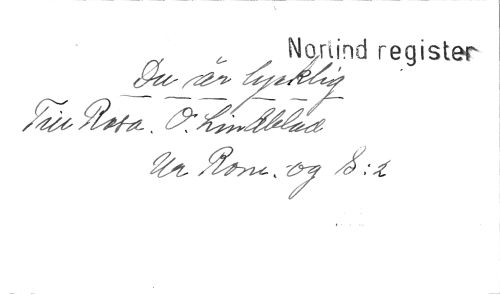 Norlind register
Du är lycklig
Till Rosa. O. Lindblad
Ur Rom. og S:2